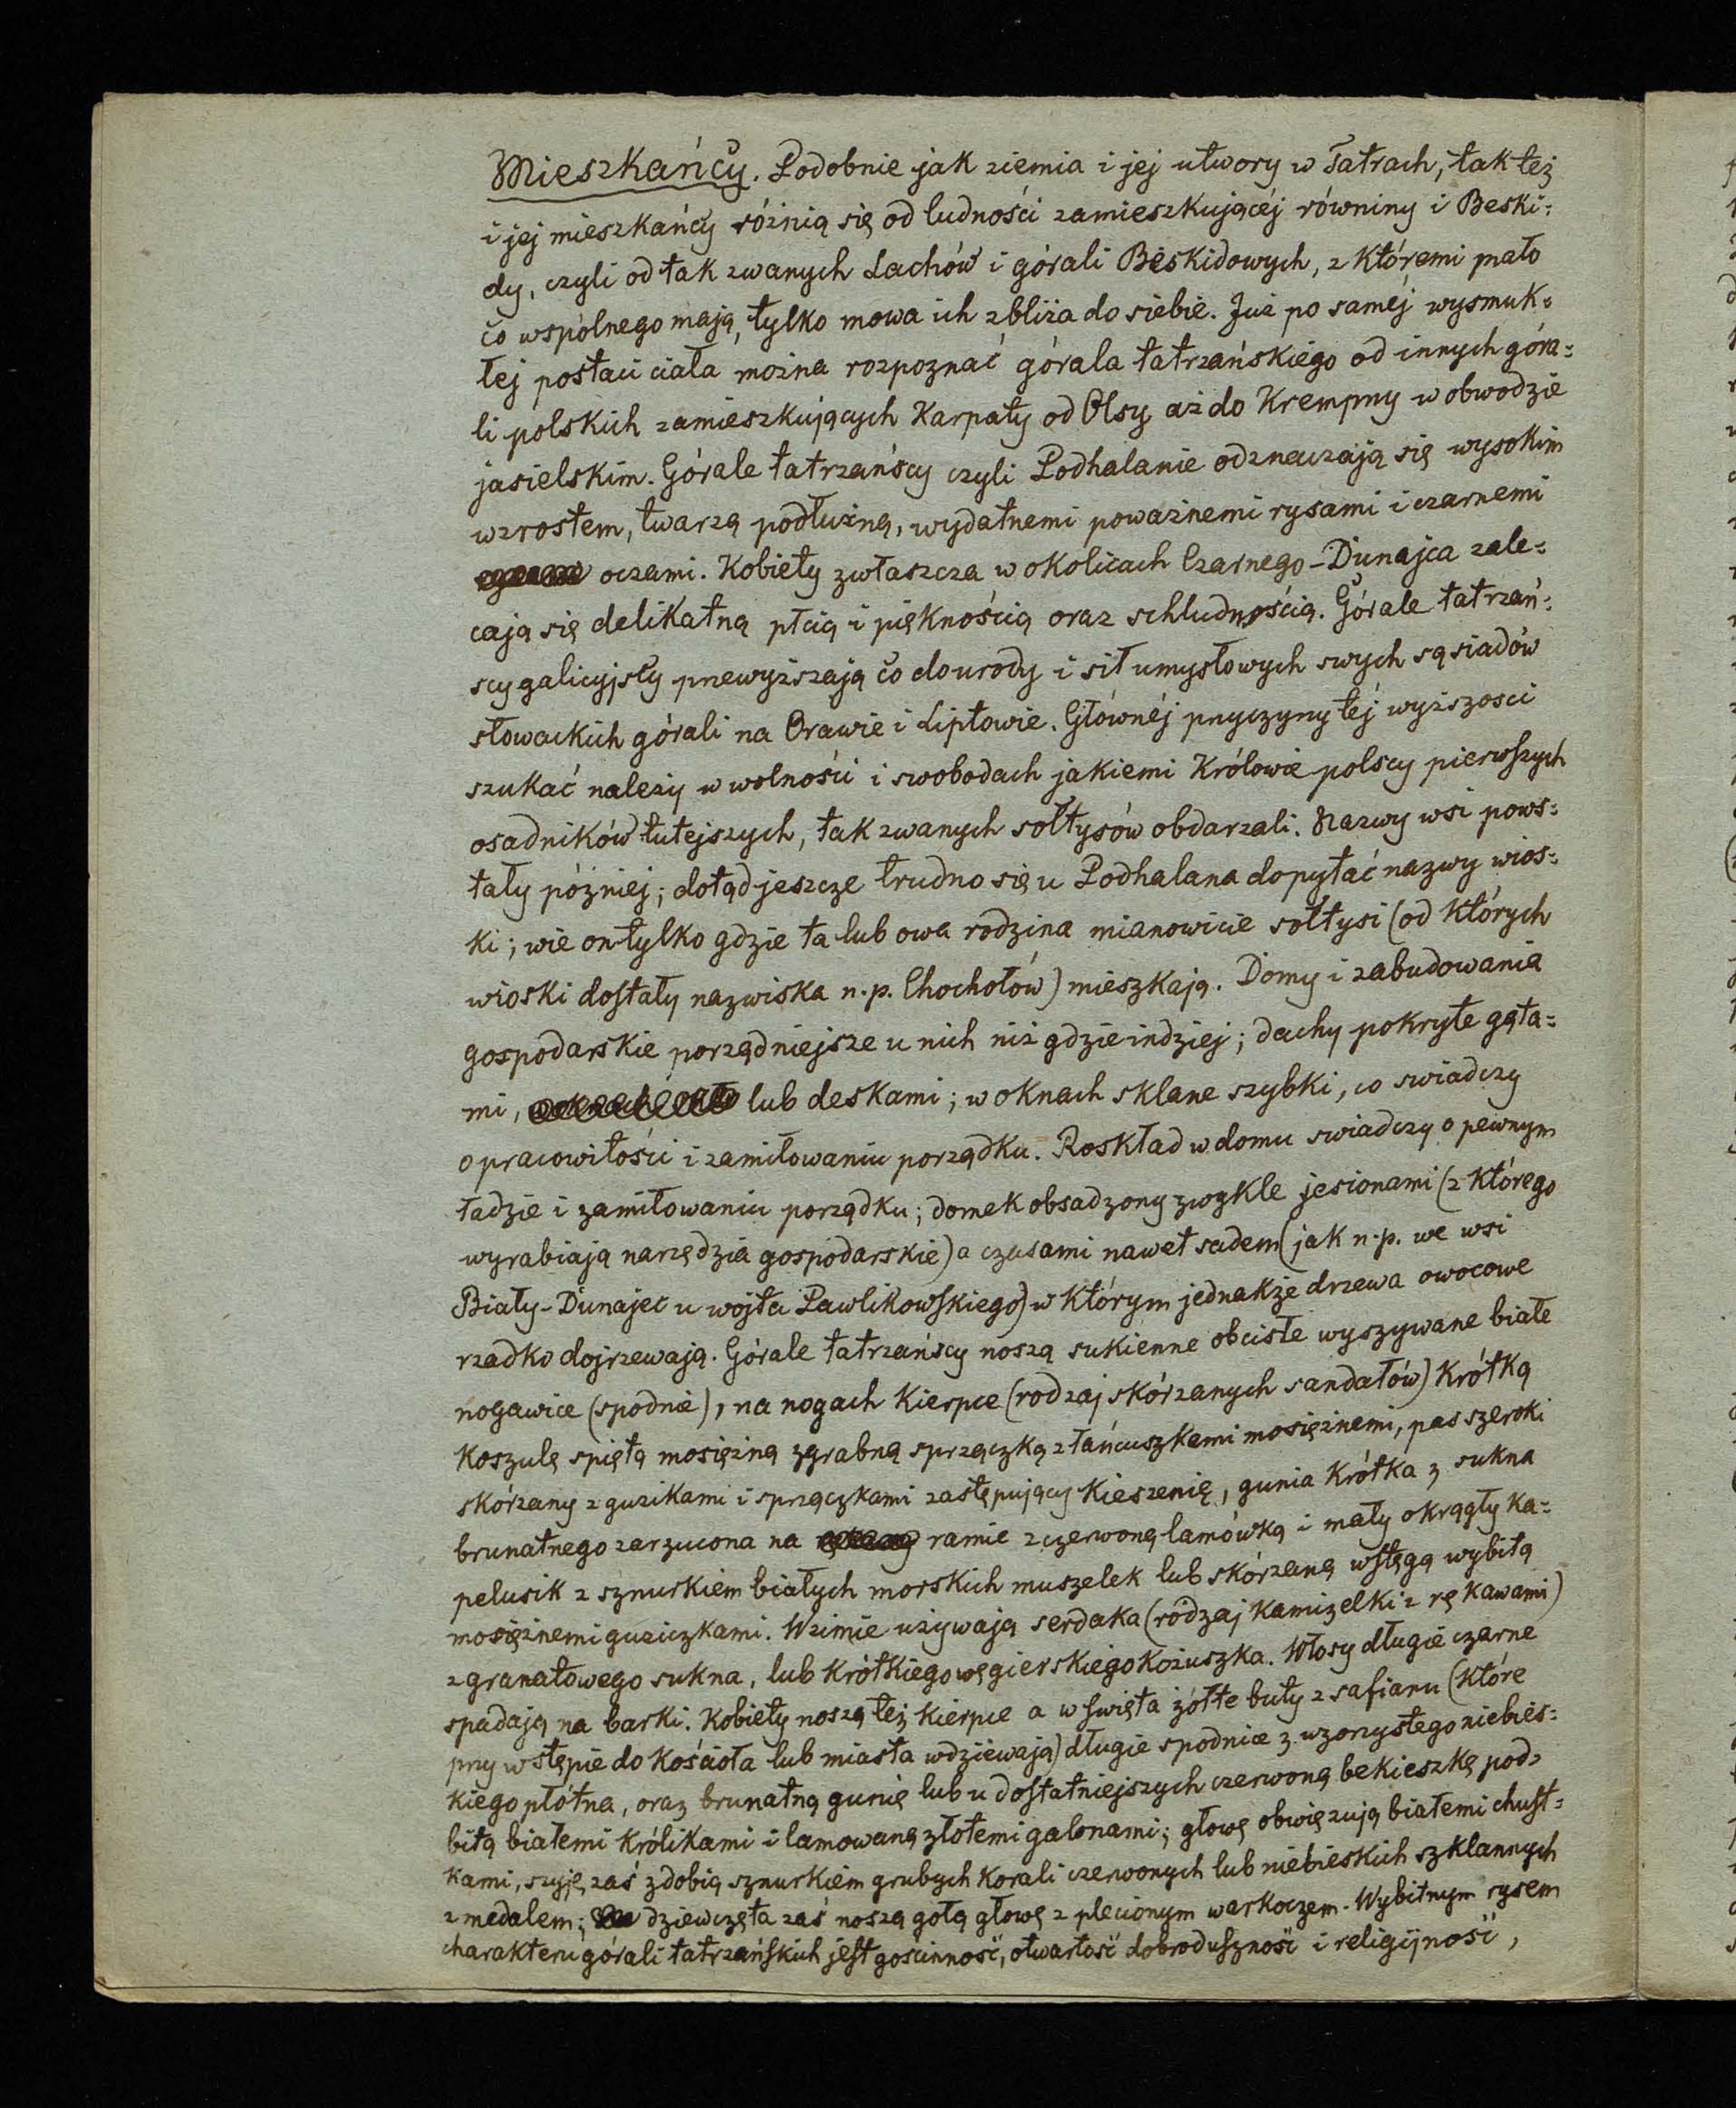 Mieszkańcy. Podobnie jak ziemia i jej utwory w Tatrach, tak też
i jej mieszkańcy różnią się od ludności zamieszkującéj równiny i Beski=
dy, czyli od tak zwanych Lachów i górali Beskidowych, z któremi mało
co wspólnego mają, tylko mowa ich zbliża do siebie. Już po saméj wysmuk=
łej postaci ciała można rozpoznać górala tatrzańskiego od innych góra=
li polskich zamieszkujących Karpaty od Olsy aż do Krempny w obwodzie
jasielskim. Górale tatrzańscy czyli Podhalanie odznaczają się wysokim
wzrostem, twarzą podłużną, wydatnemi poważnemi rysami i czarnemi
oczami. Kobiety zwłaszcza w okolicach Czarnego-Dunajca zale=
cają się delikatną płcią i pięknością oraz schludnością. Górale tatrzań=
scy galicyjscy przewyższają co do urody i sił umysłowych swych sąsiadów
słowackich górali na Orawie i Liptowie. Głównéj przyczyny téj wyższosci
szukać należy w wolności i swobodach jakiemi Królowie polscy pierwszych
osadników tutejszych, tak zwanych sołtysów obdarzali. Nazwy wsi pows=
tały później; dotąd jeszcze trudno się u Podhalana dopytać nazwy wios=
ki; wie on tylko gdzie ta lub owa rodzina mianowicie sołtysi (od których
wioski dostały nazwiska n.p. Chochołów) mieszkają. Domy i zabudowania
gospodarskie porządniejsze u nich niż gdzieindziej; dachy pokryte gąta=
mi, lub deskami; w oknach sklane szybki, co swiadczy
o pracowitości i zamiłowaniu porządku. Roskład w domu swiadczy o pewnym
ładzie i zamiłowaniu porządku; domek obsadzony zwykle jesionami (z którego
wyrabiają narzędzia gospodarskie) a czasami nawet sadem (jak n.p. we wsi
Biały-Dunajec u wójta Pawlikowskiego) w którym jednakże drzewa owocowe
rzadko dojrzewają. Górale tatrzańscy noszą sukienne obcisłe wyszywane białe
nogawice (spodnie), na nogach Kierpce (rodzaj skórzanych sandałów) krótką
koszulę spiętą mosiężną zgrabną sprzączką z łańcuszkami mosiężnemi, pas szeroki
skórzany z guzikami i sprzączkami zastępujący kieszenię, gunia krótka z sukna
brunatnego zarzucona na ramie z czerwoną lamówką i mały okrągły ka=
pelusik z sznurkiem białych morskich muszelek lub skórzaną wstęgą wybitą
mosiężnemi guziczkami. W zimie używają serdaka (rodzaj kamizelki z rękawami)
z granatowego sukna, lub krótkiego węgierskiego kożuszka. Włosy długie czarne
spadają na barki. Kobiety noszą też kierpce a w święta żółte buty z safianu (które
przy wstępie do kościoła lub miasta wdziewają) długie spodnice z wzorzystego niebies=
kiego płótna, oraz brunatną gunię lub u dostatniejszych czerwoną bekieszkę pod=
bitą białemi królikami i lamowaną złotemi galonami; głowę obwięzują białemi chust=
kami, szyję zaś zdobią sznurkiem grubych korali czerwonych lub niebieskich szklannych
z medalem; dziewczęta zaś noszą gołą głowę z plecionym warkoczem. Wybitnym rysem
charakteru górali tatrzańskich jest goscinność, otwartość dobroduszność i religijność,